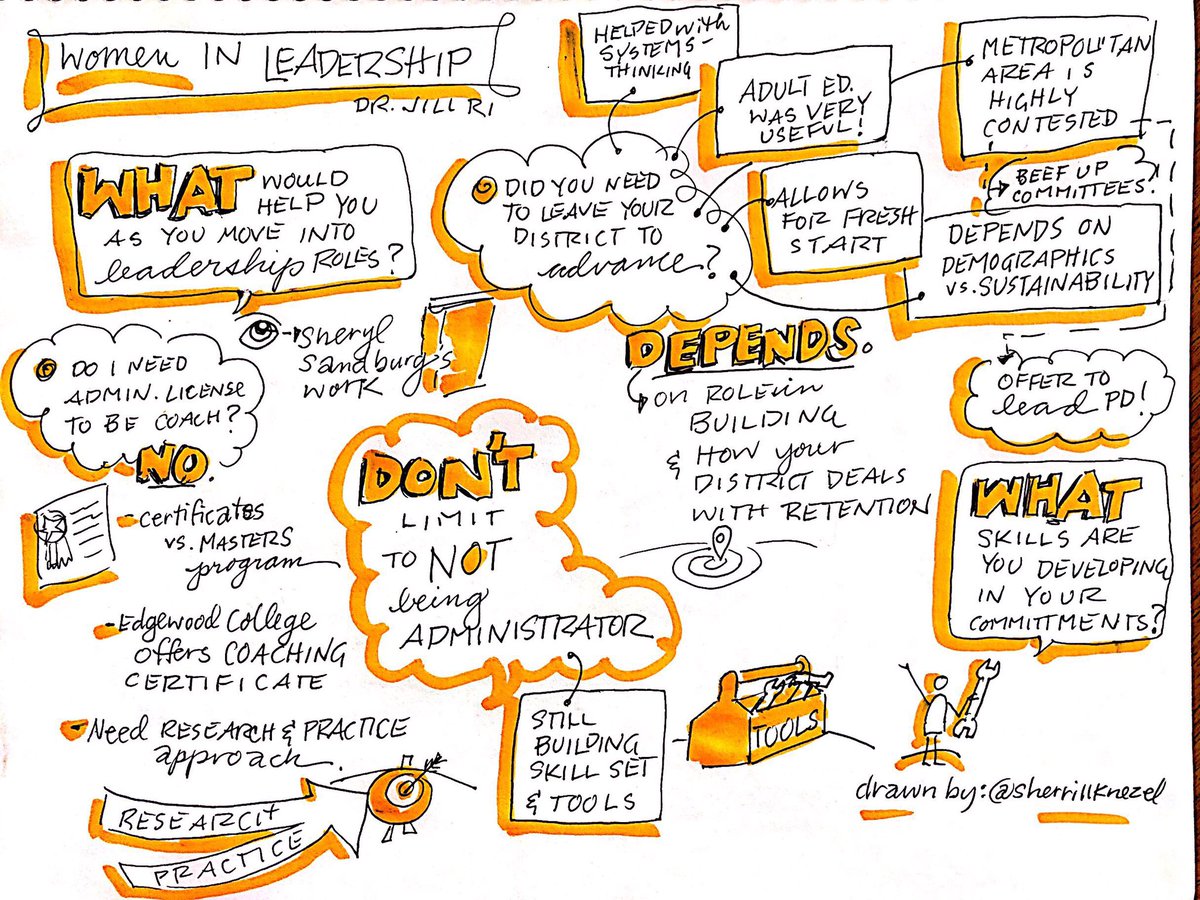 Women IN LEADERSHIP
DR. JILL RI
WHAT WOULD
HELP YOU
AS YOU MOVE INTO
leadership ROLES?
Sheryl
Sandburg's
work
DO I NEED
ADMIN. LICENSE
TO BE COACH?
NO.
-certificates
vs. MASTERS
program
-Edgewood College
offers COACHING
CERTIFICATE
-Need RESEARCH & PRACTICE
approach.
RESEARCH
PRACTICE
DON'T
LIMIT
TO NOT
being
ADMINISTRATOR
STILL
BUILDING
SKILL SET
& TOOLS
TOOLS
DID YOU NEED
TO LEAVE YOUR
DISTRICT TO
advance?
HELPED WITH
SYSTEMS-
THINKING
ADULT ED.
WAS VERY
USEFUL!
METROPOLITAN
AREA IS
HIGHLY
CONTESTED
BEEF UP
COMMITTEES!
ALLOWS
FOR FRESH
START
DEPENDS ON
DEMOGRAPHICS
vs. SUSTAINABILITY
DEPENDS.
on ROLE in
BUILDING
& HOW your
DISTRICT DEALS
WITH RETENTION
OFFER TO
lead PD!
WHAT
SKILLS ARE
YOU DEVELOPING
IN YOUR
COMMITTMENTS?
drawn by: @sherrillknezel